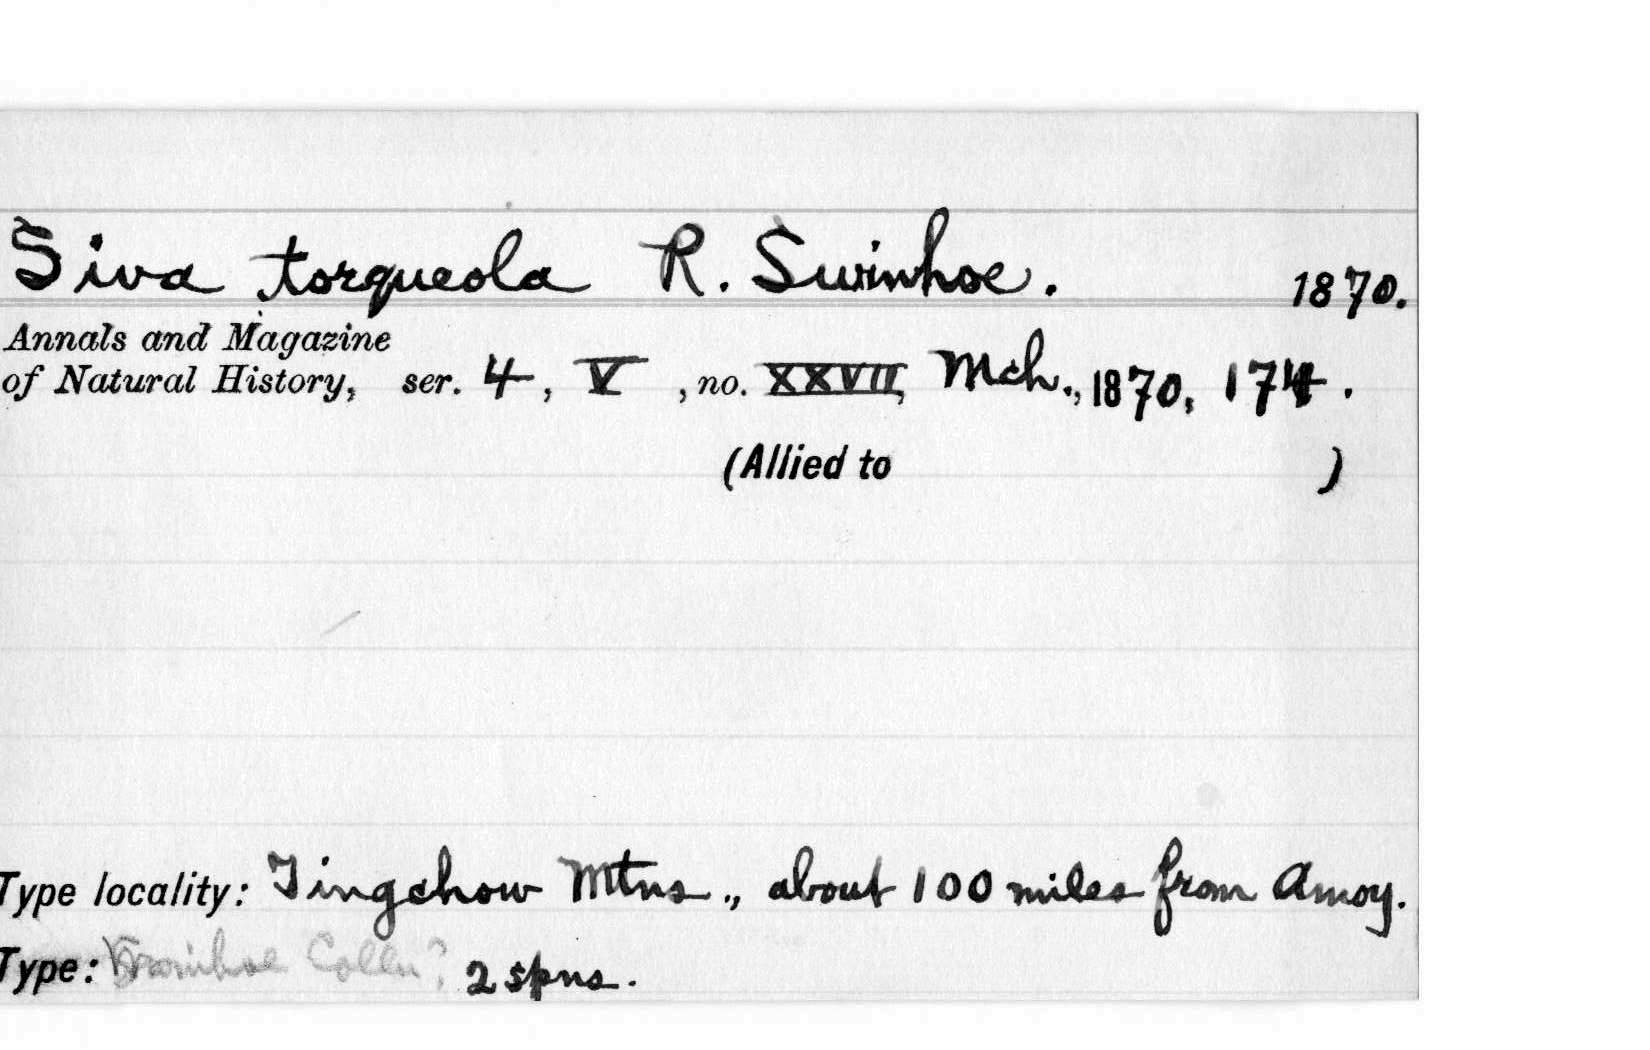 Siva torqueola R. Swinhoe. 1870.
Annals and Magazine
of Natural History, ser. 4, V, no. XXVII, Mch., 1870, 174.
(Allied to )
Type locality: Tingchow Mtns., about 100 miles from Amoy.
Type: Swinhoe Colln? 2 spns.